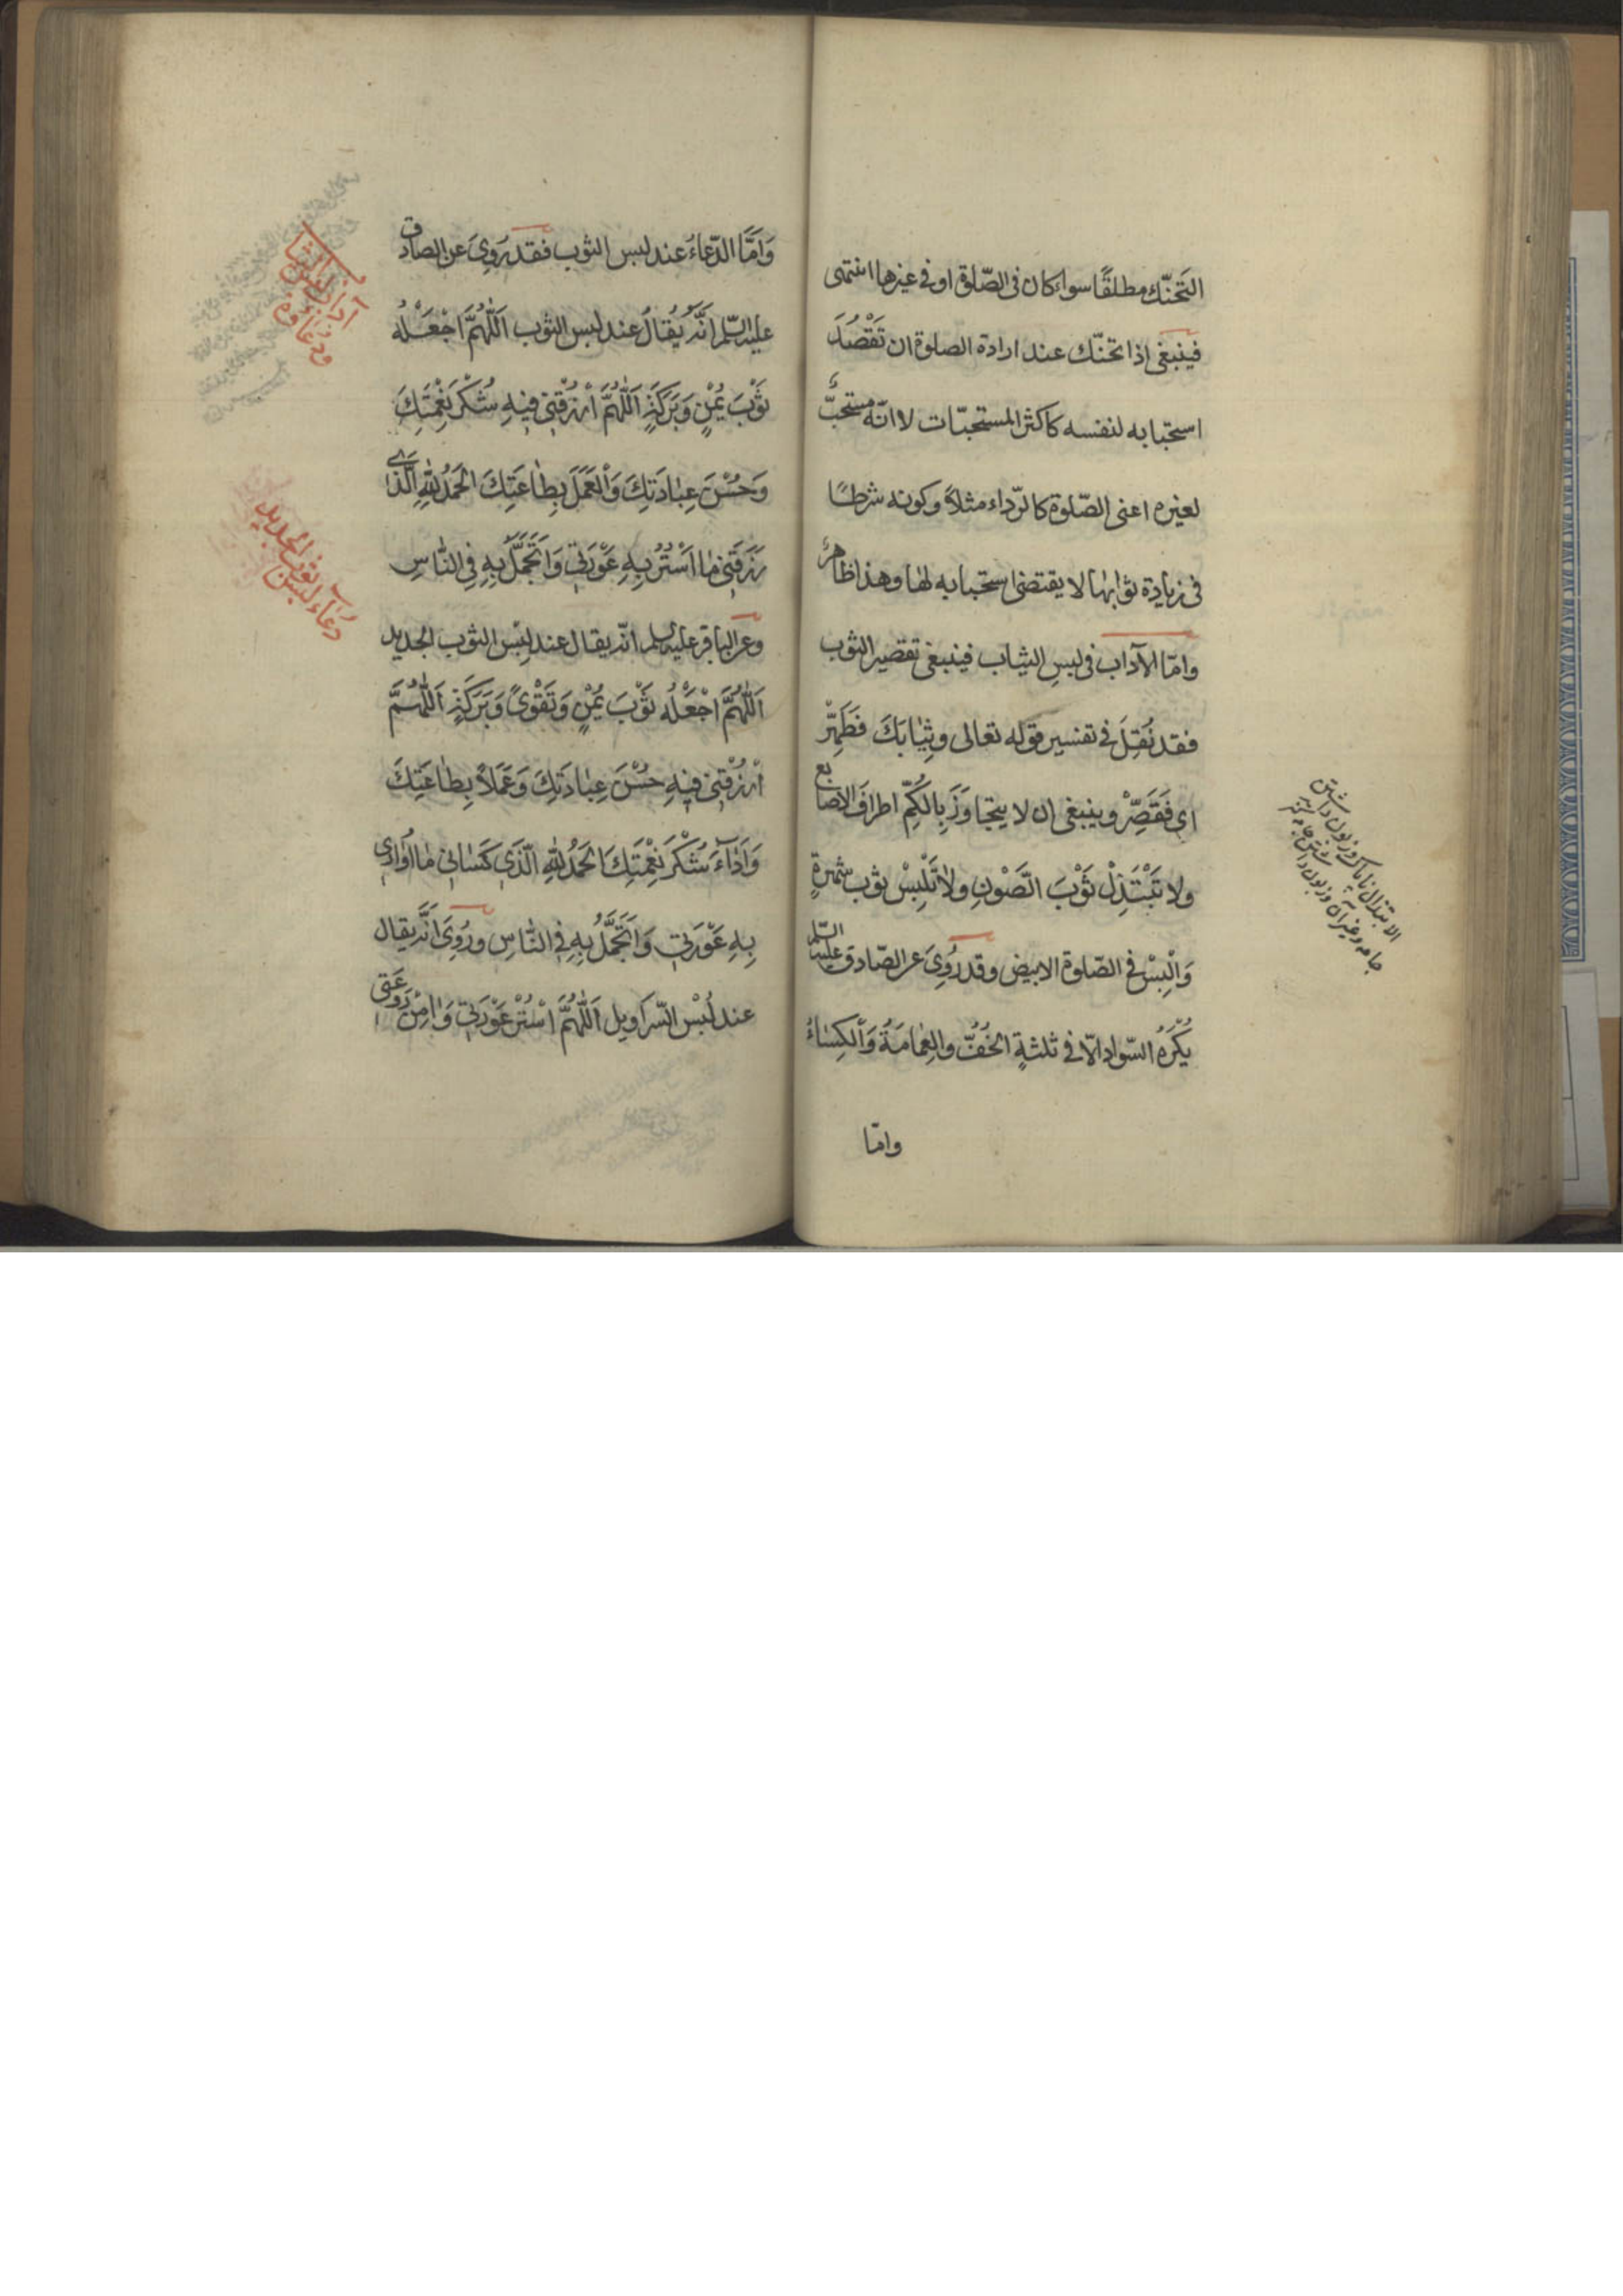 التَحنّك مطلقًا سواء كان فى الصّلوة او فى غيرها انتهى
فينبغى اذا تحنّك عند ارادة الصلوة ان تَقْصُدَ
استحبابه لنفسه كاكثر المستحبّات لا انّه مستحبٌّ
لغيره اعنى الصّلوة كالرّداء مثلاً وكونه شرطًا
فى زيادة ثوابها لا يقتضى استحبابه لها وهذا ظاهرٌ
وامّا الآداب فى لبسِ الثياب فينبغى تقصير الثوب
فقد نُقِلَ فى تفسير قوله تعالى وَثِيَابَكَ فَطَهِّرْ
اى فَقَصِّرْ وينبغى ان لا يتجاوَزَ بِالكُمِّ اطرافَ الاصابع
ولا تَبْتَذِلْ ثَوْبَ الصَّوْنِ ولا تَلْبِسْ ثوب شهرةٍ
وَالْبِسْ فى الصّلوة الابيض وقد رُوِىَ عن الصّادق عليه السّلم
يُكْرَهُ السّواد الّا فى ثلثةٍ الخُفُّ والعِمَامَةُ وَالكِسَاءُ
وامّا
الابتذال
جامه و غير آن
وَامَّا الدّعاءُ عند لبس الثوب فقد رُوِىَ عن الصادق
عليه السّلم انَّه يُقالُ عند لبس الثوب اَللّٰهُمَّ اجْعَلْهُ
ثَوْبَ يُمْنٍ وَبَرَكَةٍ اَللّٰهُمَّ ارْزُقْنِى فِيهِ شُكْرَ نِعْمَتِكَ
وَحُسْنَ عِبَادَتِكَ وَالْعَمَلَ بِطَاعَتِكَ الْحَمْدُ لِلّٰهِ الَّذِى
رَزَقَنِى مَا اَسْتُرُ بِهِ عَوْرَتِى وَاَتَجَمَّلُ بِهِ فِى النَّاسِ
وعن الباقر عليه السلم انّه يقال عند لِبْسِ الثوب الجديد
اَللّٰهُمَّ اجْعَلْهُ ثَوْبَ يُمْنٍ وَتَقْوىً وَبَرَكَةٍ اَللّٰهُمَّ
ارْزُقْنِى فِيهِ حُسْنَ عِبَادَتِكَ وَعَمَلاً بِطَاعَتِكَ
وَاَدَاءَ شُكْرِ نِعْمَتِكَ الْحَمْدُ لِلّٰهِ الَّذِى كَسَانِى مَا اُوَارِى
بِهِ عَوْرَتِى وَاَتَجَمَّلُ بِهِ فِى النَّاسِ ورُوِىَ انَّه يقال
عند لُبْسِ السّراويل اَللّٰهُمَّ اسْتُرْ عَوْرَتِى وَاٰمِنْ رَوْعَتِى
دعاء لبس ثوب الجديد